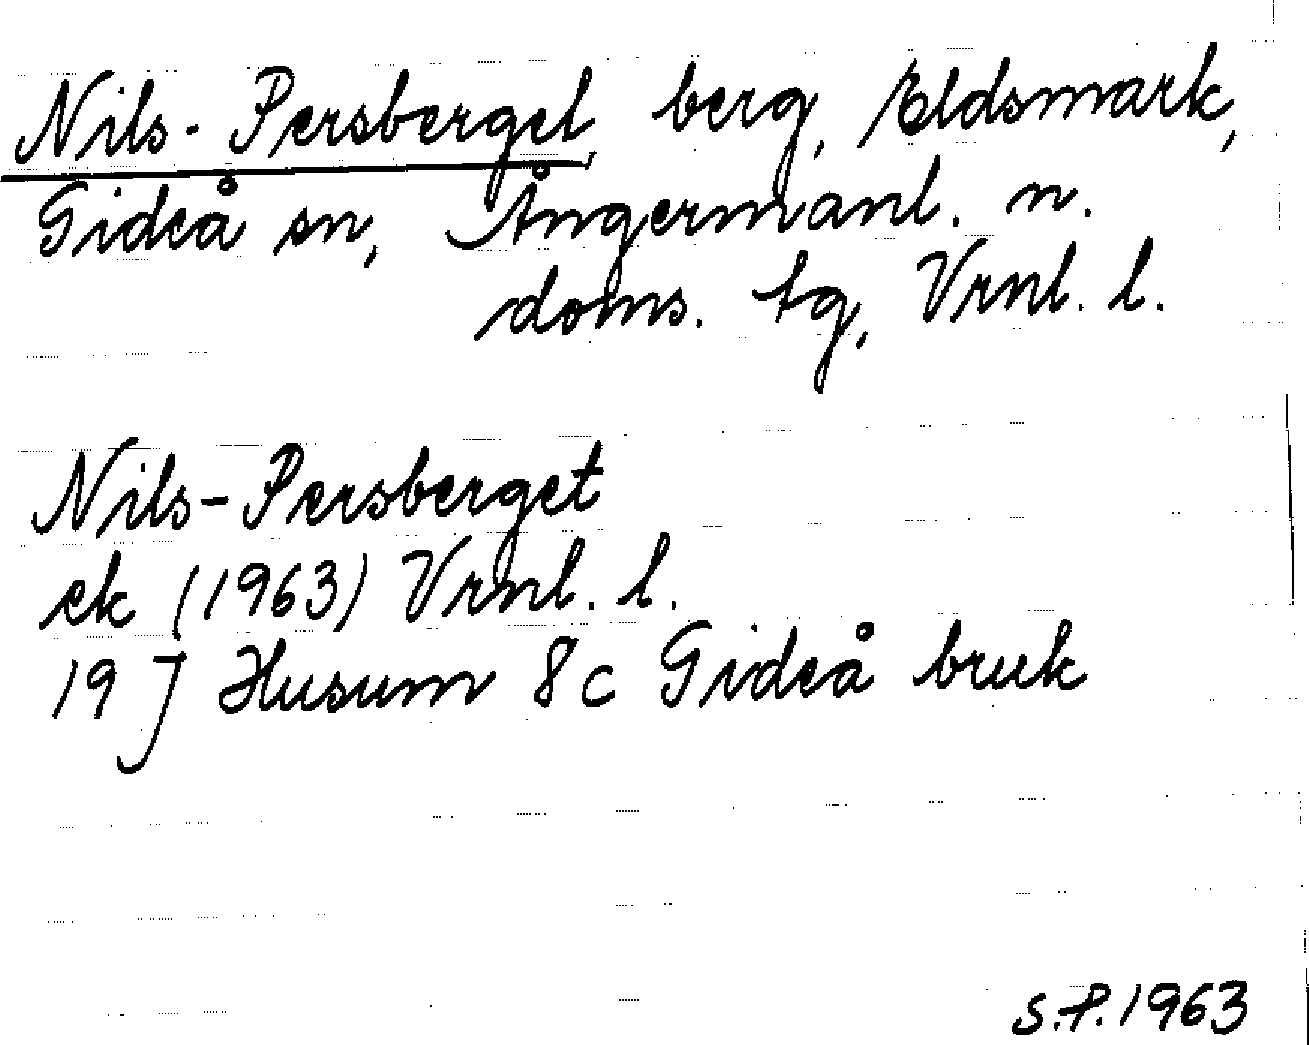 Nils-Persberget berg, Eldsmark,
Gideå sn, Ångermanl. n.
doms. tg, Vrnl. l.
Nils-Persberget
ek (1963) Vrnl. l.
19 J Husum 8c Gideå bruk
S.P. 1963